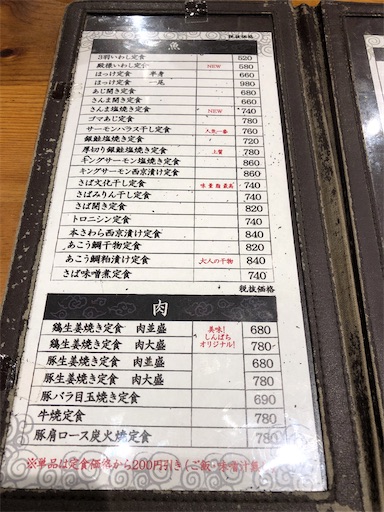 魚 税抜価格
3羽いわし定食 520
殿様いわし定食 NEW 580
ほっけ定食 半身 660
ほっけ定食 一尾 980
あじ開き定食 680
さんま開き定食 660
さんま塩焼き定食 NEW 740
ゴマあじ定食 780
サーモンハラス干し定食 人気一番 760
銀鮭塩焼き定食 720
厚切り銀鮭塩焼き定食 上質 780
キングサーモン塩焼き定食 860
キングサーモン西京漬け定食 860
さば文化干し定食 味 量 脂 最高 740
さばみりん干し定食 740
さば開き定食 820
トロニシン定食 740
本さわら西京漬け定食 840
あこう鯛干物定食 820
あこう鯛粕漬け定食 大人の干物 840
さば味噌煮定食 740
税抜価格
肉
鶏生姜焼き定食 肉並盛 美味!しんぱちオリジナル! 680
鶏生姜焼き定食 肉大盛 780
豚生姜焼き定食 肉並盛 680
豚生姜焼き定食 肉大盛 780
豚バラ目玉焼き定食 690
牛焼定食 780
豚肩ロース炭火焼定食 780
※単品は定食価格から200円引き(ご飯・味噌汁